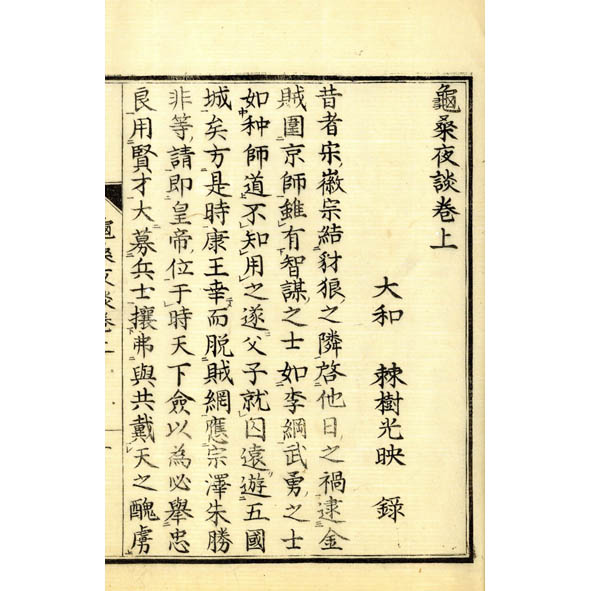 龜桑夜談卷上
大和 棘樹光映 錄
昔者宋徽宗結豺狼之隣啓他日之禍逮金
賊圍京師雖有智謀之士如李綱武勇之士
如种師道不知用之遂父子就囚遠遊五國
城矣方是時康王幸而脫賊網應宗澤朱勝
非等請即皇帝位于時天下僉以為必舉忠
良用賢才大募兵士攘弗與共戴天之醜虜